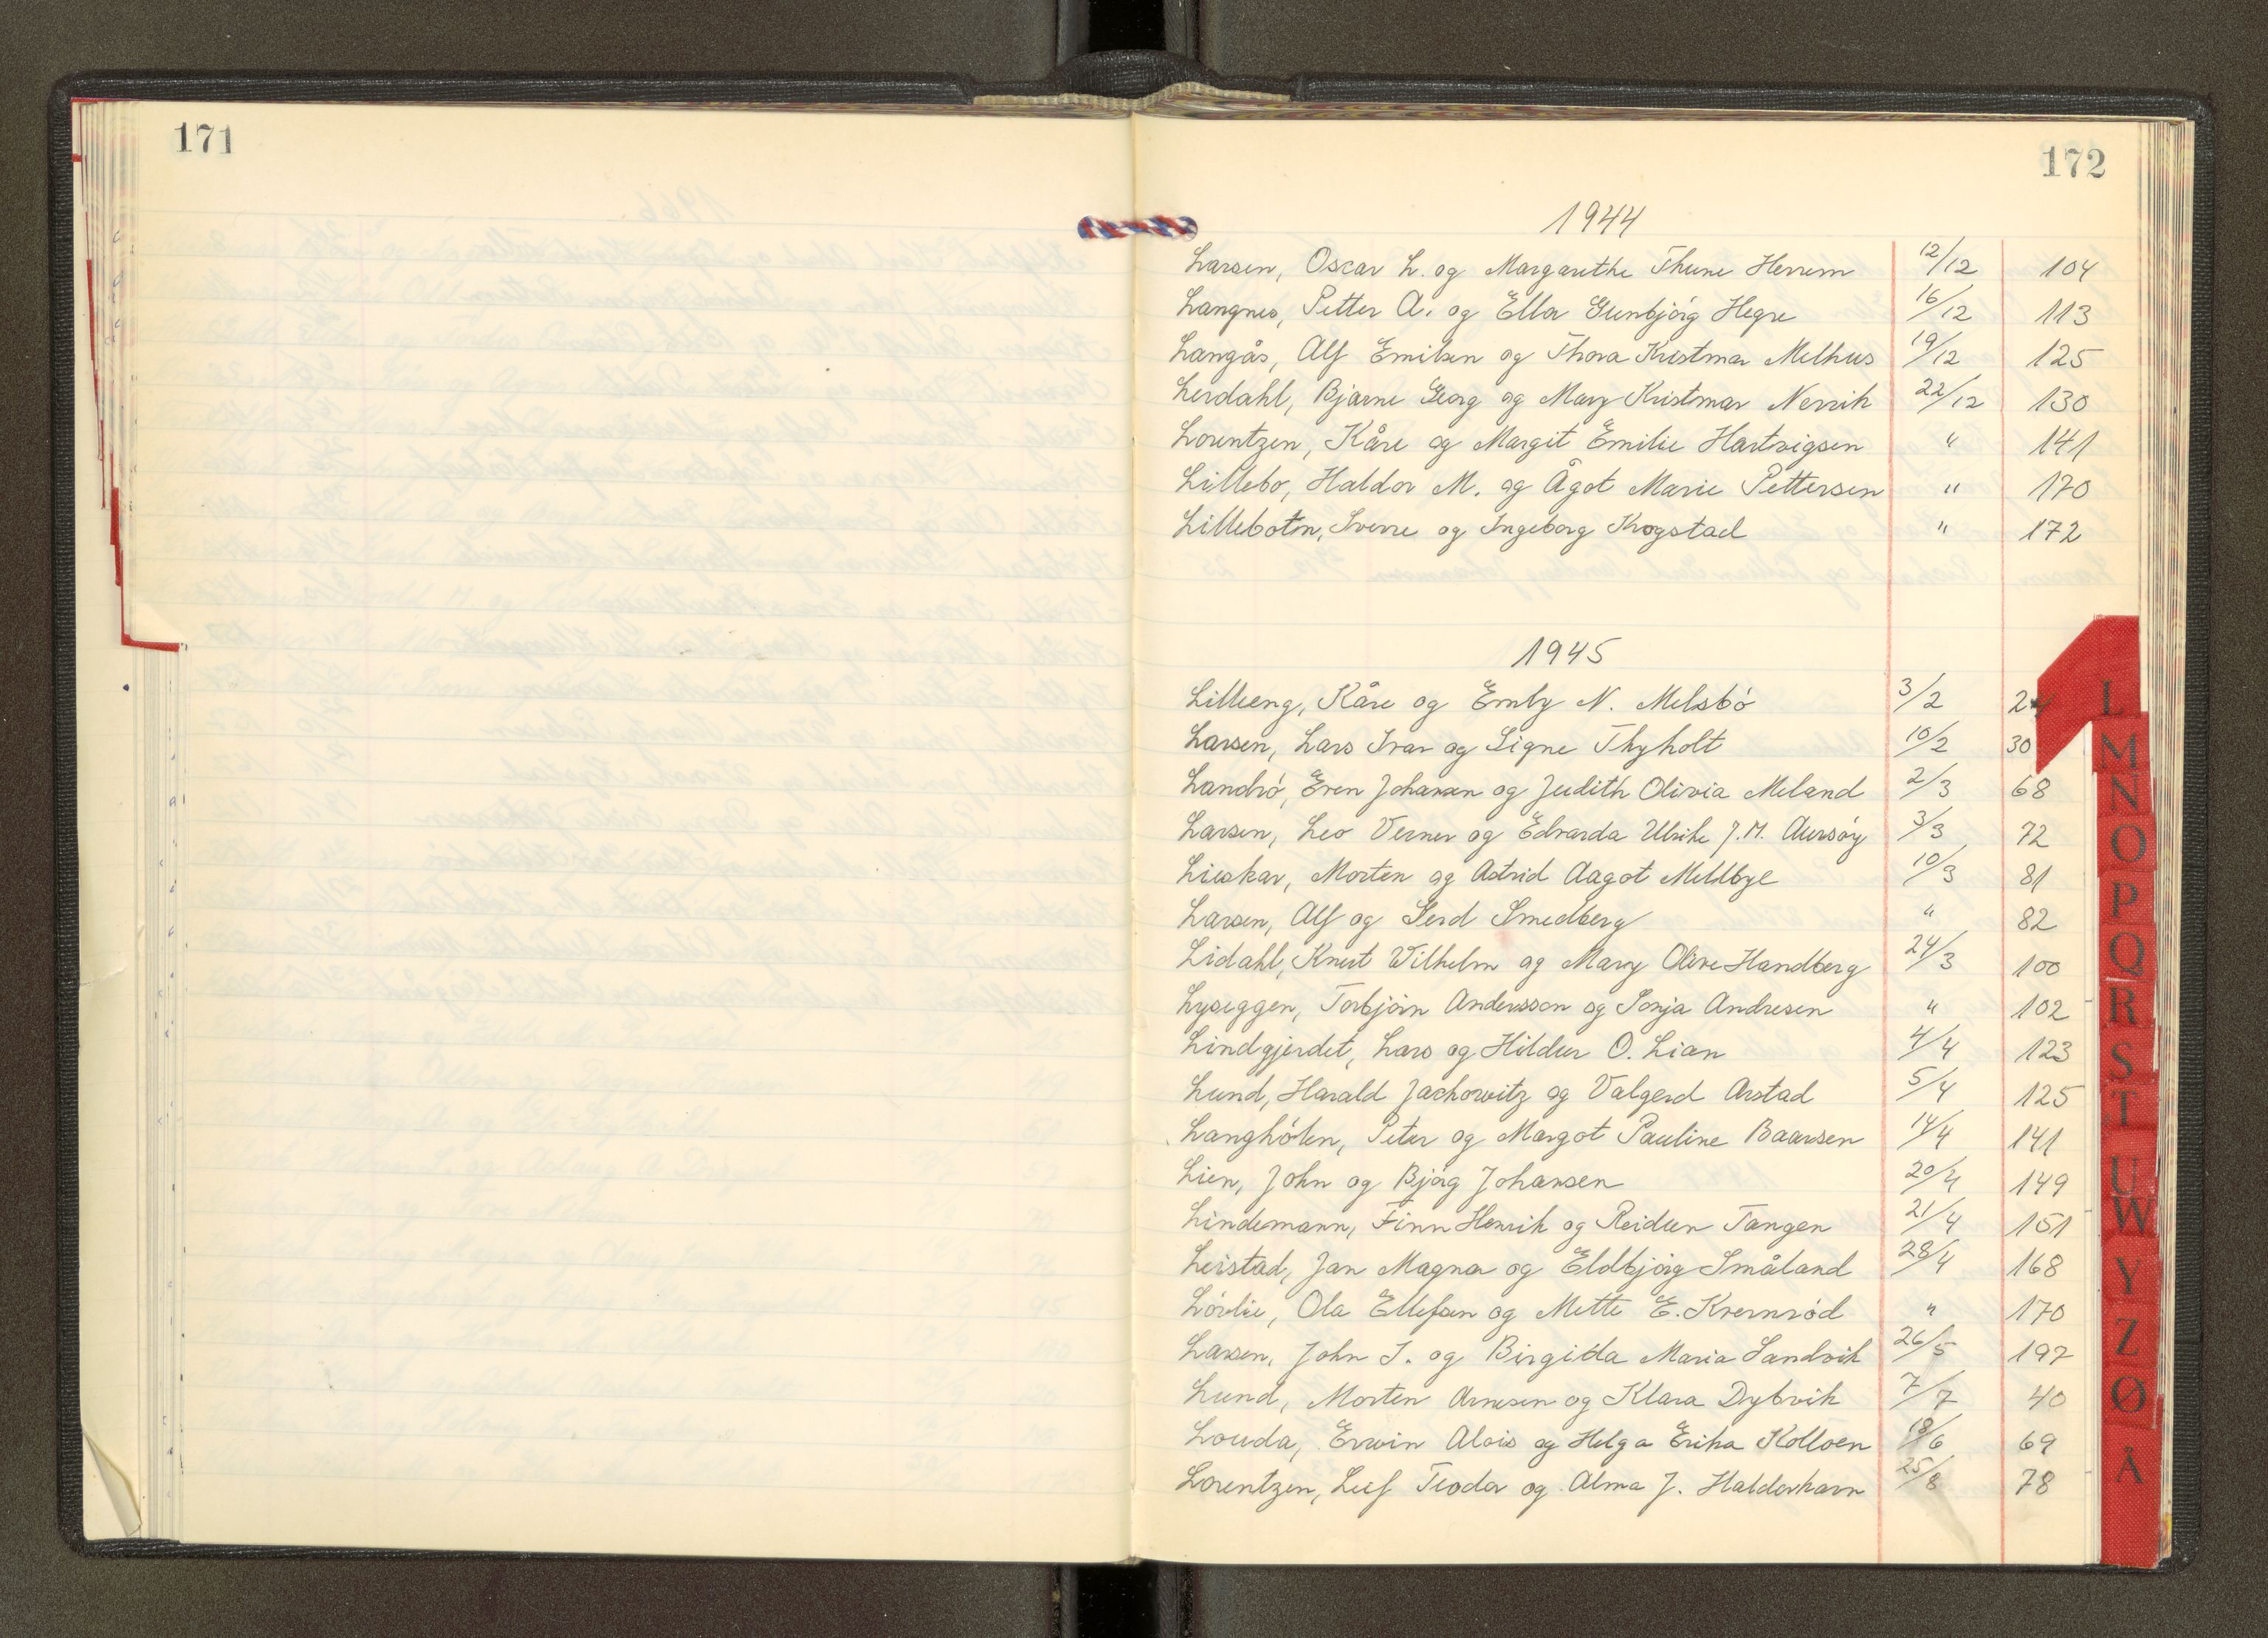 171
172
1944
Larsen, Oscar L. og Margarethe Thune Herrem 12/12 104
Langnes, Petter A. og Ella Gunbjørg Hegre 16/12 113
Langås, Alf Emilsen og Thora Kristmar Melhus 19/12 125
Lerdahl, Bjarne Georg og Mary Kristmar Nervik 22/12 130
Lorentzen, Kåre og Margit Emilie Hartvigsen " 141
Lillebo, Haldor M. og Ågot Marie Pettersen " 170
Lillebotn, Sverre og Ingeborg Krogstad " 172
1945
Lilleeng, Kåre og Emly N. Melsbó 3/2 24
Larsen, Lars Ivar og Signe Thyholt 10/2 30
Landró, Even Johansen og Judith Olivia Meland 2/3 68
Larsen, Leo Verner og Edvarda Ulrike J.M. 3/3 72
Lieskar, Morten og Astrid Aagot Meldbye 10/3 81
Larsen, Alf og Gerd Smedberg " 82
Lidahl, Knut Wilhelm og Mary Olive Handberg 24/3 100
Lyseggen, Torbjórn Andersson og Sonja Andresen " 102
Lindgjerdet, Lars og Hildur O. Lian 4/4 123
Lund, Harald Jachowitz og Valgerd Arstad 5/4 125
Langhólen, Peter og Margot Pauline Baarsen 14/4 141
Lien, John og Bjórg Johansen 20/4 149
Lindemann, Finn Henrik og Reidun Tangen 21/4 151
Leistad, Jan Magnar og Eldbjórg Småland 28/4 168
Lórlie, Ola Ellefsen og Mette E. Kvernród " 170
Larsen, John I. og Birgitta Maria Sandvik 26/5 197
Lund, Morten Arnesen og Klara Dybvik 7/7 40
Louda, Erwin Alois og Helga Erika Kolloen 18/6 69
Lorentzen, Leif Teodor og Alma J. Halderhavn 25/8 78
L
M
N
O
P
Q
R
S
T
U
W
Y
Z
Ø
Å